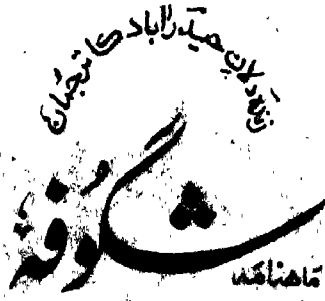 زندہ دلانِ حیدرآباد کا ترجمان
ماهنامہ
شگوفہ